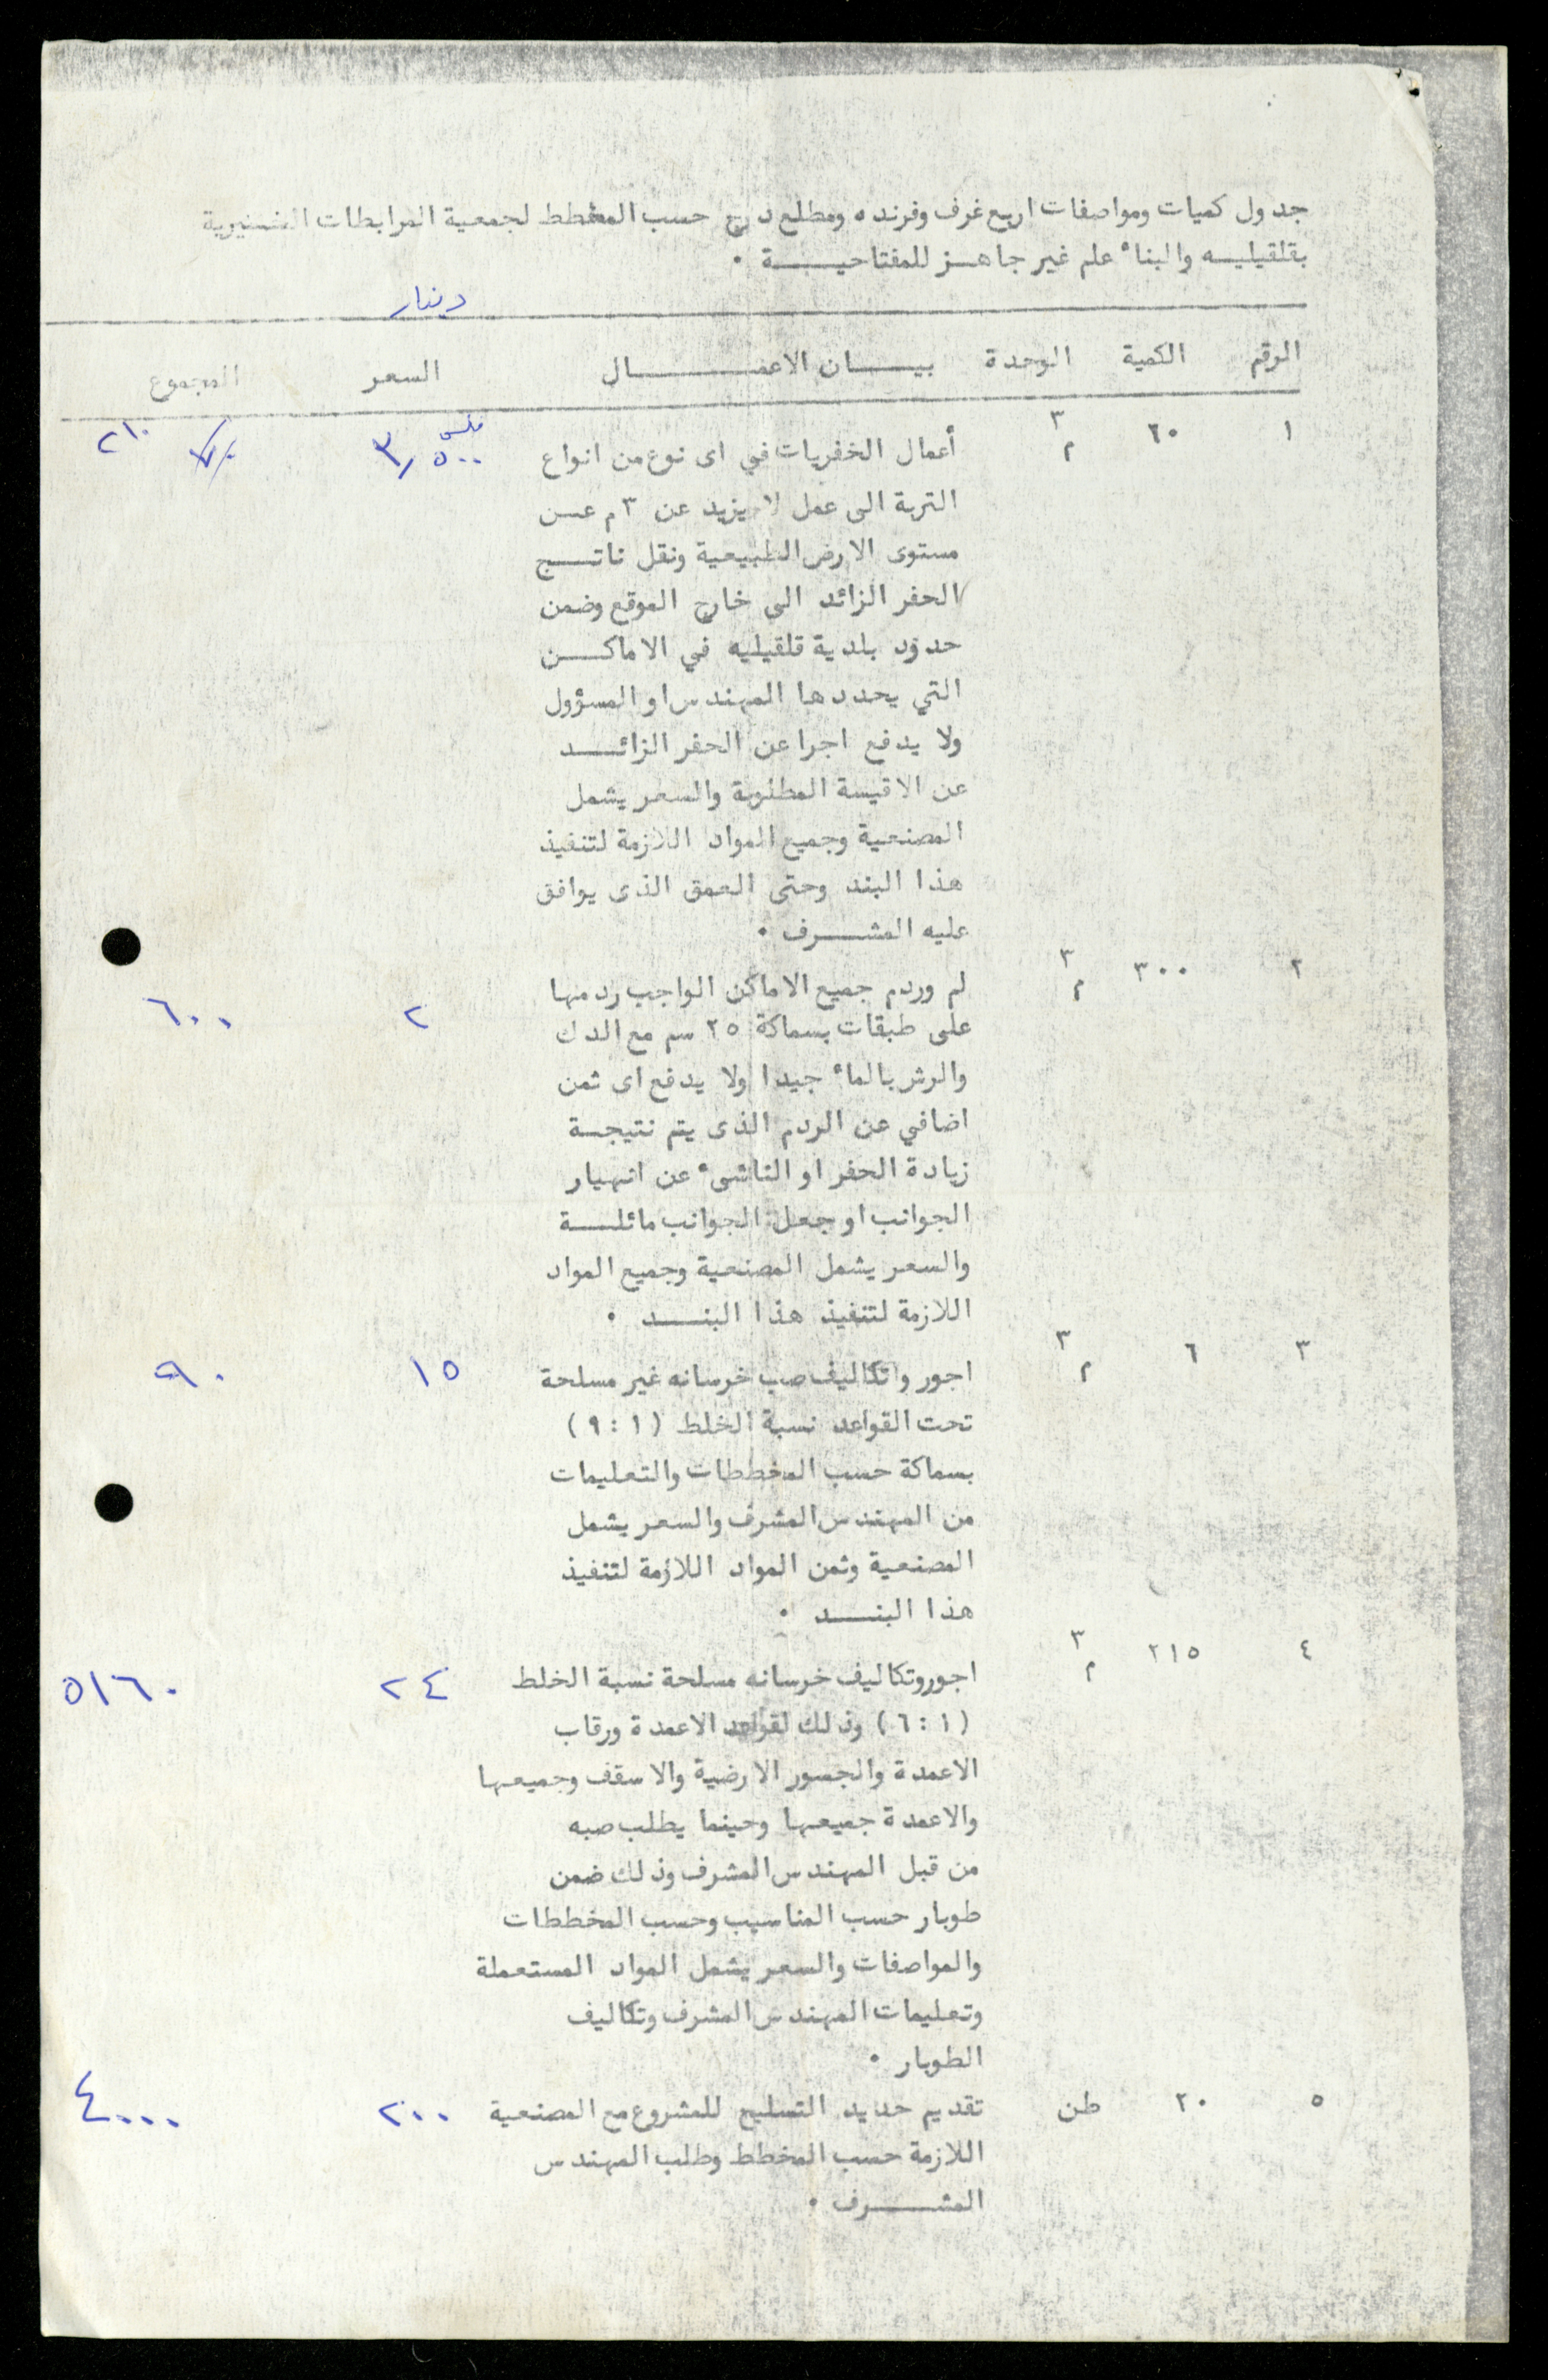 جدول كميات ومواصفات اربع غرف وفرنده ومطلع درج حسب المخطط لجمعية المرابطات الخيرية
بقلقيليـه والبناء علم غير جاهـز للمفتاحيـــة .
دينار
الرقم الكمية الوحدة بيـــان الاعمـــــال السعر المجموع
١ ٦٠ م٣ أعمال الخفريات في اى نوع من انواع ٣٫٥٠٠ فلس ٢١٠
التربة الى عمل لا يزيد عن ٣ م عـن
مستوى الارض الطبيعية ونقل ناتـــج
الحفر الزائد الى خارج الموقع وضمن
حدود بلدية قلقيليه في الاماكـــن
التي يحددها المهندس او المسؤول
ولا يدفع اجرا عن الحفر الزائـــد
عن الاقيسة المطلوبة والسعر يشمل
المصنعية وجميع المواد اللازمة لتنفيذ
هذا البند وحتى العمق الذى يوافق
عليه المشـــرف .
٢ ٣٠٠ م٣ لم وردم جميع الاماكن الواجب ردمها ٢ ٦٠٠
على طبقات بسماكة ٢٥ سم مع الدك
والرش بالماء جيدا ولا يدفع اى ثمن
اضافي عن الردم الذى يتم نتيجـة
زيادة الحفر او الناشىء عن انهيار
الجوانب او جعل الجوانب مائلــة
والسعر يشمل المصنعية وجميع المواد
اللازمة لتنفيذ هذا البنـــد .
٣ ٦ م٣ اجور واتكاليف صب خرسانه غير مسلحة ١٥ ٩٠
تحت القواعد نسبة الخلط ( ١ : ٩ )
بسماكة حسب المخططات والتعليمات
من المهندس المشرف والسعر يشمل
المصنعية وثمن المواد اللازمة لتنفيذ
هذا البنــد .
٤ ٢١٥ م٣ اجوروتكاليف خرسانه مسلحة نسبة الخلط ٢٤ ٥١٦٠
( ١ : ٦ ) وذلك لقواعد الاعمدة ورقاب
الاعمدة والجسور الارضية والاسقف وجميعها
والاعمدة جميعها وحينما يطلب صبه
من قبل المهندس المشرف وذلك ضمن
طوبار حسب المناسيب وحسب المخططات
والمواصفات والسعر يشمل المواد المستعملة
وتعليمات المهندس المشرف وتكاليف
الطوبار .
٥ ٢٠ طن تقديم حديد التسليح للمشروع مع المصنعية ٢٠٠ ٤٠٠٠
اللازمة حسب المخطط وطلب المهندس
المشـــرف .